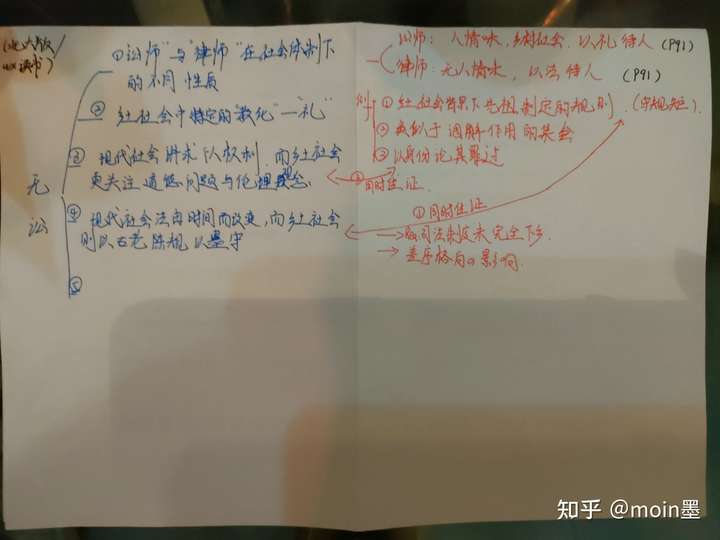 (北大版/
收读书)
无讼
①"讼师"与"律师"在社会体制下
的不同性质
②乡土社会中特定的"教化"—"礼"
③现代社会讲求个人权利,而乡土社会
更关注道德问题与伦理观念
④现代社会法由时间而改变,而乡土社会
则以古老陈规以墨守
⑤
讼师:人情味,乡村社会.以礼待人(P91)
律师:无人情味,以法待人(P91)
①乡土社会背景下先祖制定的规则.(守规矩)
②类似于调解作用的集会
③以身份论其罪过
①同时佐证
①同时佐证
→现司法制度未完全下乡.
→差序格局の影响.
知乎 @moin墨